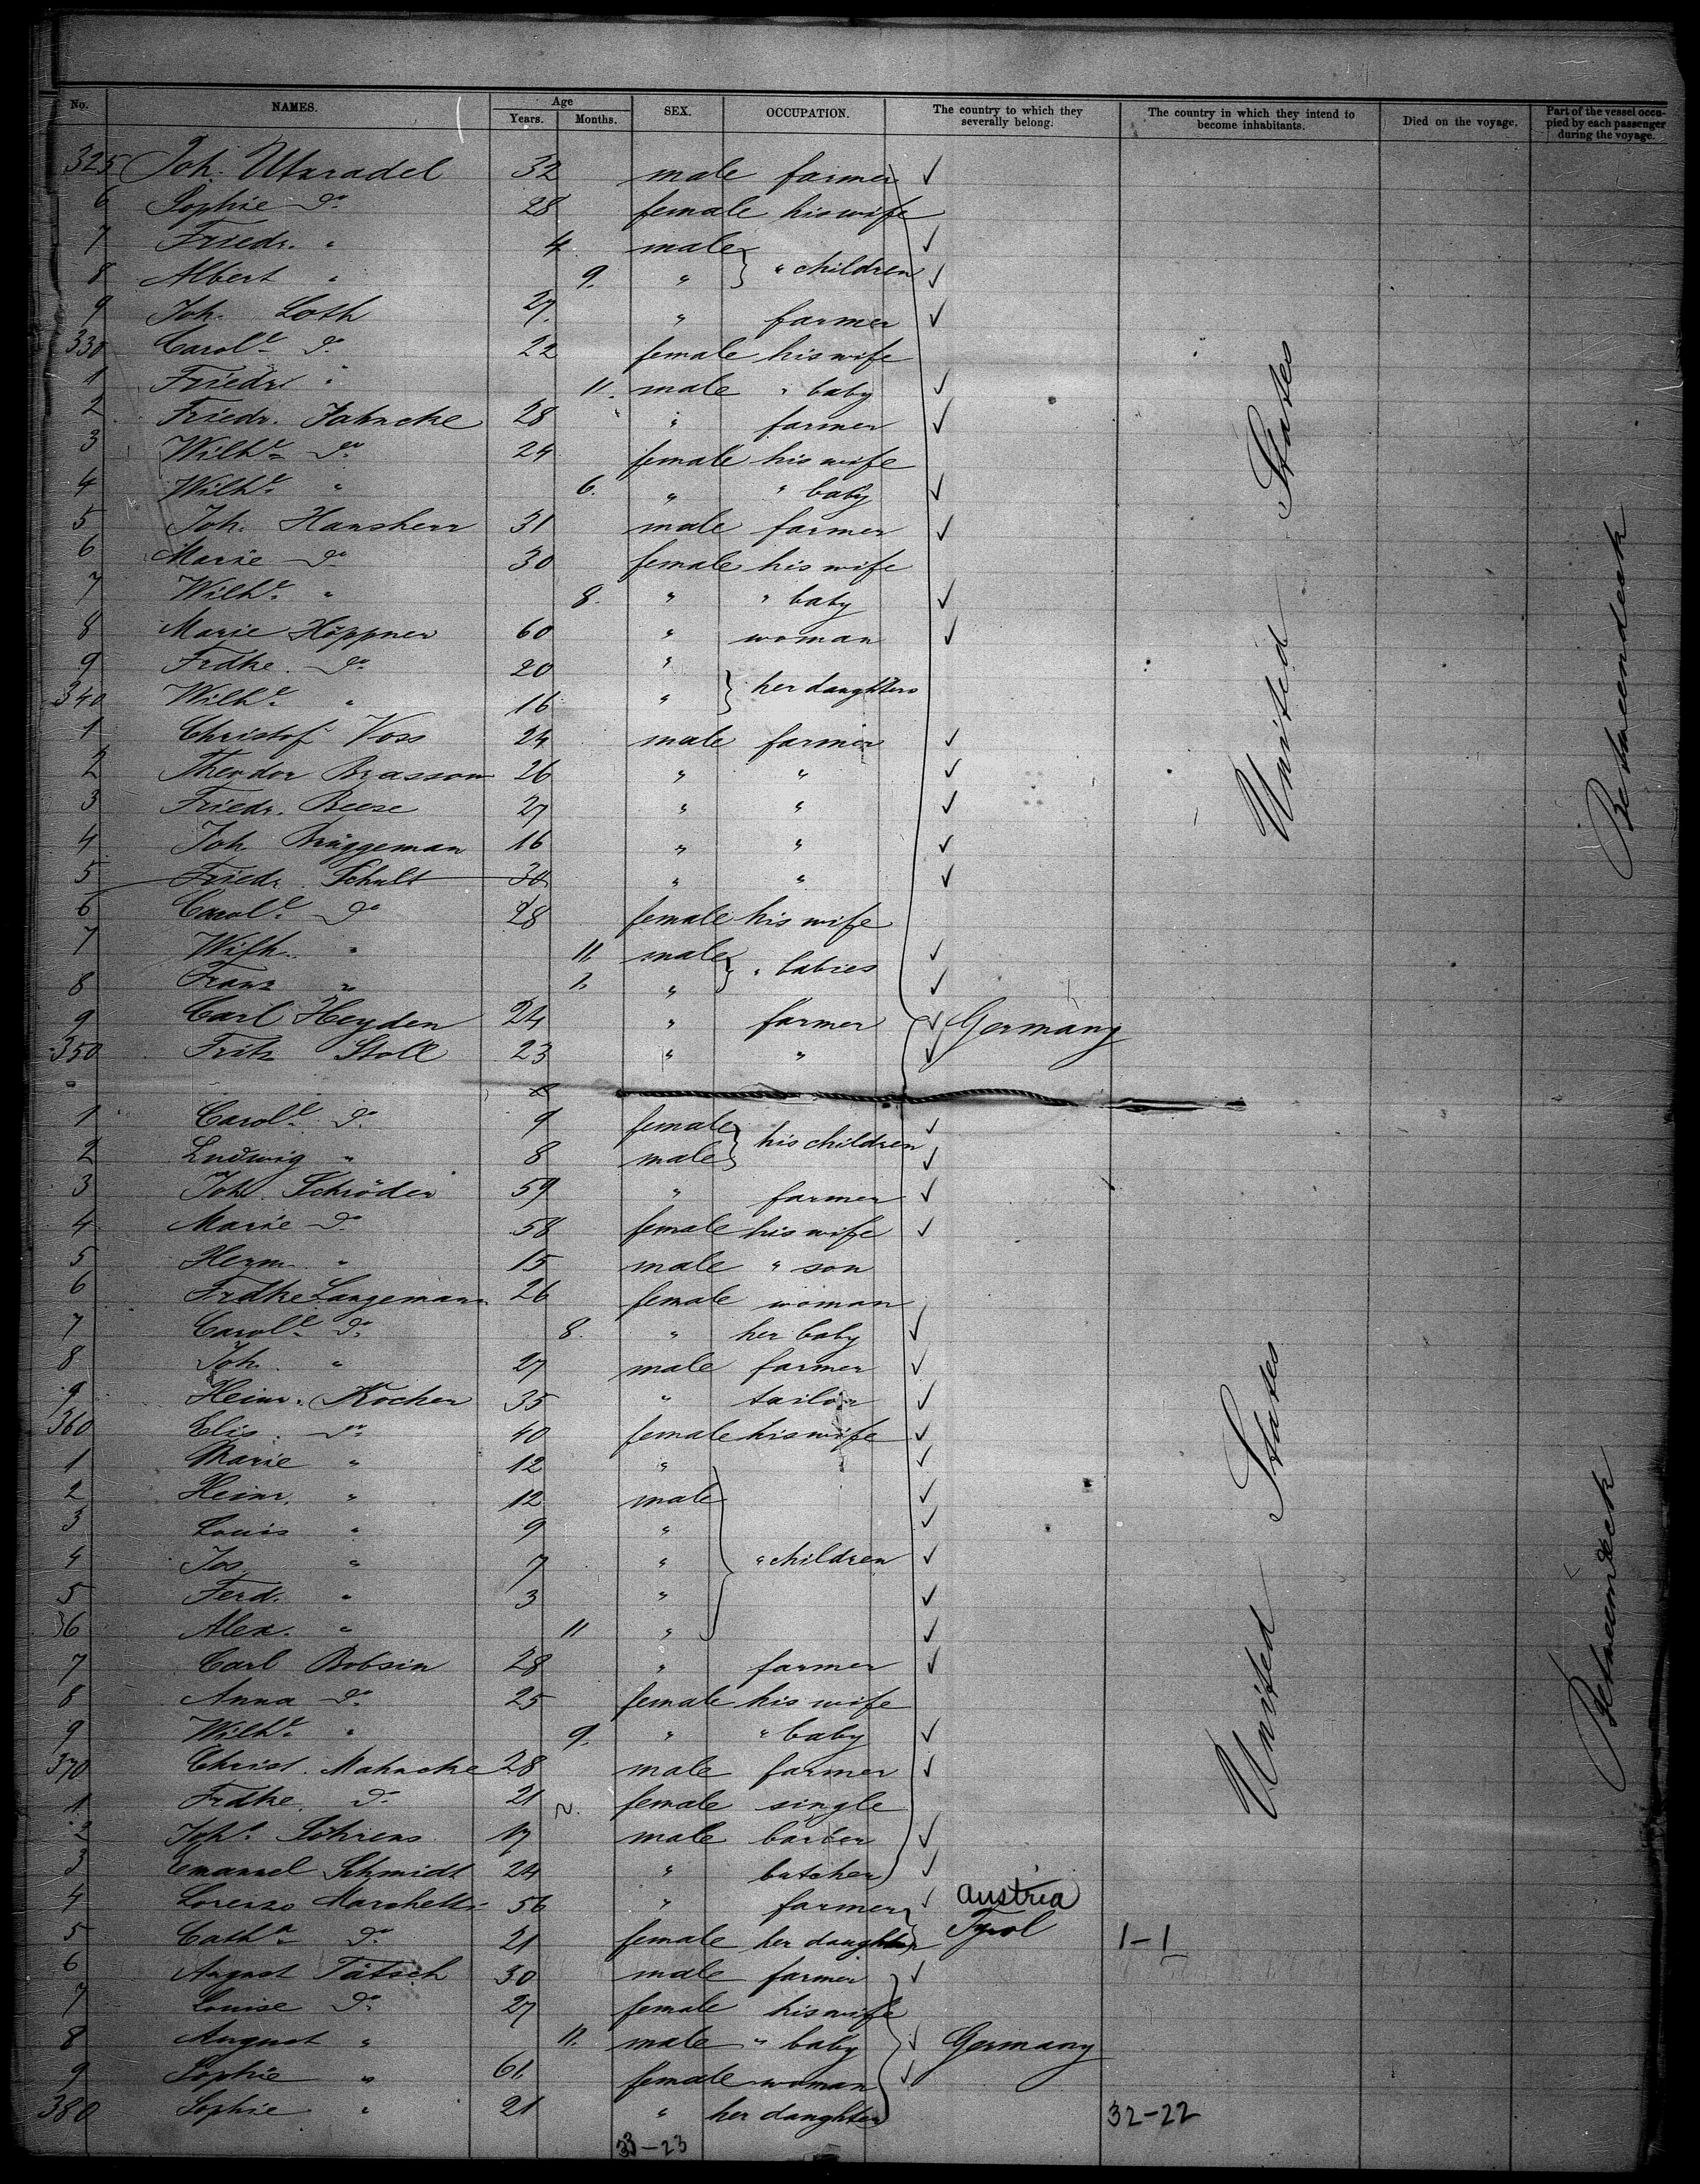 No. NAMES. Age Years. Months. SEX. OCCUPATION. The country to which they severally belong. The country in which they intend to become inhabitants. Died on the voyage. Part of the vessel occupied by each passenger during the voyage.
325 Joh. 32 male farmer ✓
6 Sophie do 28 female his wife
7 Friedr. " 4 male ✓
8 Albert " 9. " } " children ✓
9 Joh. Loth 27. " farmer ✓
330 Carole do 22 female his wife
1 Friedr. " 11. male " baby ✓
2 Friedr. Jahncke 28 " farmer ✓
3 Wilhe do 24 female his wife
4 Wilhe " 6. " " baby ✓
5 Joh. Hansherr 31 male farmer ✓
6 Marie do 30 female his wife
7 Wilhe " 8. " " baby ✓
8 Marie Höppner 60 " woman ✓
9 Frdke. do 20 "
340 Wilhe " 16 " } her daughters
1 Christof Voss 24 male farmer ✓
2 Theodor Brassow 26 " " ✓
3 Friedr. Beese 27 " " ✓
4 Joh. Brüggeman 16 " " ✓
5 Friedr. Schult 30 " " ✓
6 Carole do 28 female his wife
7 Wilh. " 11. male ✓
8 Franz " 1. " } " babies ✓
9 Carl Heyden 24 " farmer ✓ Germany
350 Fritz Stoll 23 " " ✓
1 Carole do 9 female ✓
2 Ludwig " 8 male } his children ✓
3 Joh. Schröder 59 " farmer ✓
4 Marie do 58 female his wife ✓
5 Herm. " 15 male " son
6 Frdke Langemann 26 female woman
7 Carole do 8. " her baby ✓
8 Joh. " 27 male farmer ✓
9 Heinr. Kocher 35 " tailor ✓
360 Elis. do 40 female his wife ✓
1 Marie " 12 " ✓
2 Heinr. " 12 male ✓
3 Louis " 9 " ✓
4 Jos. " 7 " } " children ✓
5 Ferd. " 3 " ✓
36 Alex. " 11 " ✓
7 Carl Bobsin 28 " farmer ✓
8 Anna do 25 female his wife
9 Wilhe " 9. " " baby ✓
370 Christ. Mahncke 28 male farmer ✓
1 Frdke. do 21 female single
2 Johs. Sührens 17 male barber ✓
3 Emanuel Schmidt 24 " butcher ✓
4 Lorenzo Marchetti 56 " farmer ✓ Austria
5 Cathe do 21 female her daughter Tyrol 1-1
6 August Tätsch 30 male farmer ✓
7 Louise do 27 female his wife
8 August " 11. male " baby ✓ Germany
9 Sophie " 61. female woman ✓
380 Sophie " 21 " her daughter 32-22
33-23
United States
Betweendeck
United States
Betweendeck